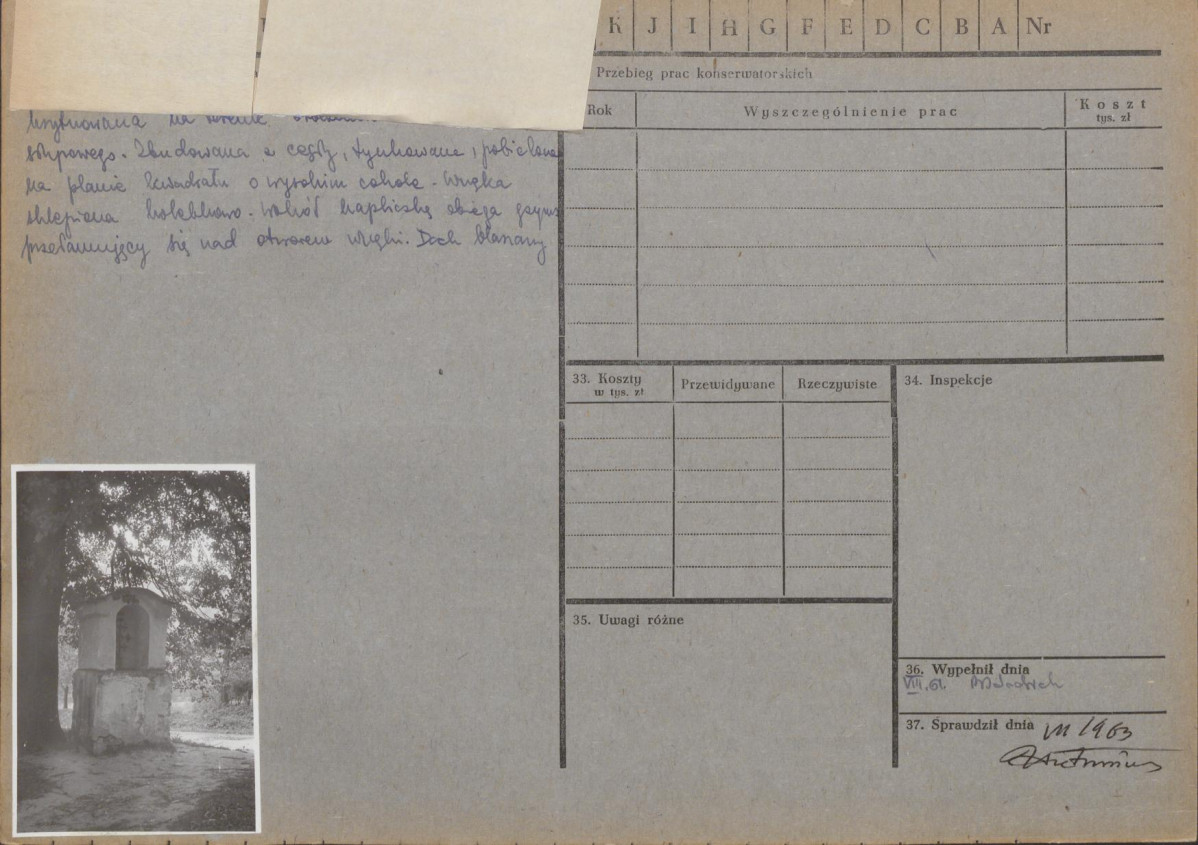 K J I H G F E D C B A Nr
Przebieg prac konserwatorskich
Rok
Wyszczególnienie prac
Koszt
tys. zł
usytuowana na terenie
słupowego. Zbudowana z cegły, tynkowana, pobielona
na planie kwadratu o wysokim cokole. Wnęka
sklepiona kolebkowo. Wokół kapliczkę obiega gzyms
przełamujący się nad otworem wnęki. Dach blaszany
33. Koszty
w tys. zł
Przewidywane
Rzeczywiste
34. Inspekcje
35. Uwagi różne
36. Wypełnił dnia
VIII.61.
37. Sprawdził dnia
VII 1963